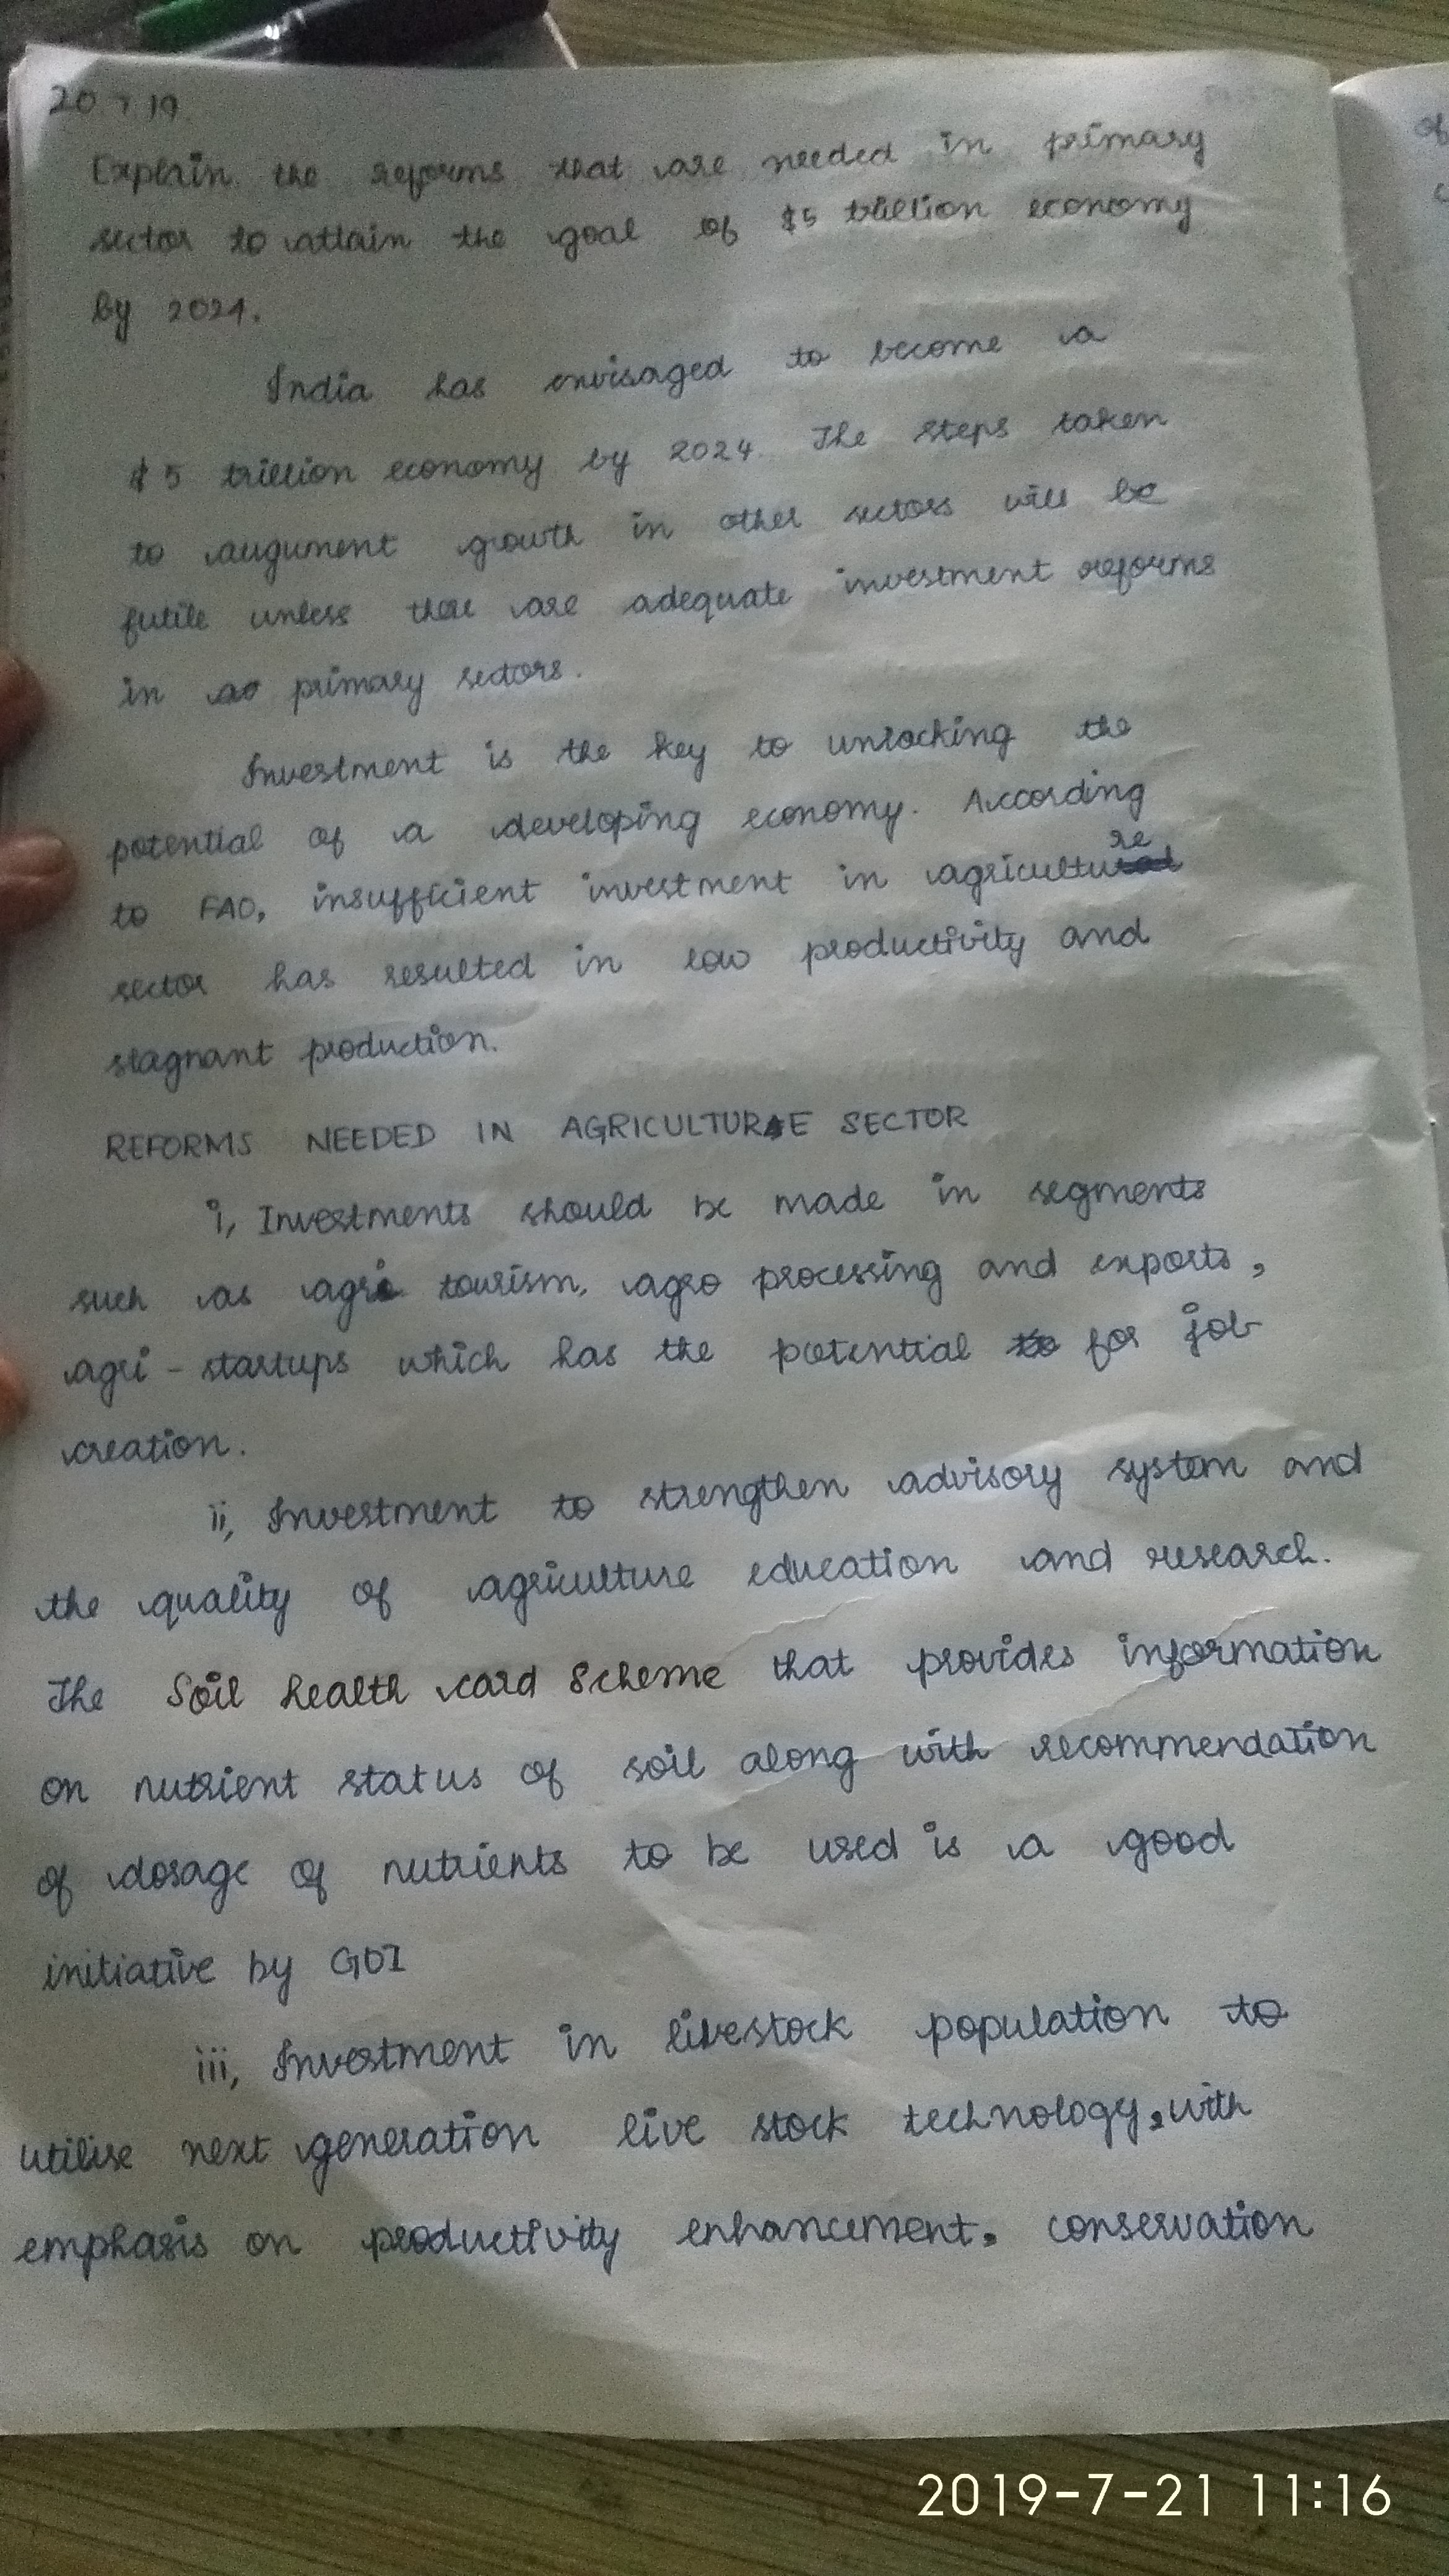 20.7.19
Explain the reforms that are needed in primary
sector to attain the goal of $5 trillion economy
by 2024.
India has envisaged to become a
$5 trillion economy by 2024. The steps taken
to augument growth in other sectors will be
futile unless there are adequate investment reforms
in primary sectors.
Investment is the key to unlocking the
potential of a developing economy. According
to FAO, insufficient investment in agriculture
sector has resulted in low productivity and
stagnant production.
REFORMS NEEDED IN AGRICULTURE SECTOR
i, Investments should be made in segments
such as agri tourism, agro processing and exports,
agri-startups which has the potential for job
creation.
ii, Investment to strengthen advisory system and
the quality of agriculture education and research.
The Soil health card Scheme that provides information
on nutrient status of soil along with recommendation
of dosage of nutrients to be used is a good
initiative by GOI
iii, Investment in livestock population to
utilise next generation live stock technology, with
emphasis on productivity enhancement, conservation
2019-7-21 11:16